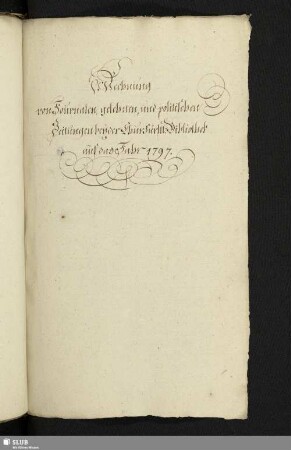 Rechnung
von Journalen, gelehrten, und politischen
Zeitungen bey der Churfürstl. Bibliothek
auf das Jahr 1797.
SLUB
Wir führen Wissen.